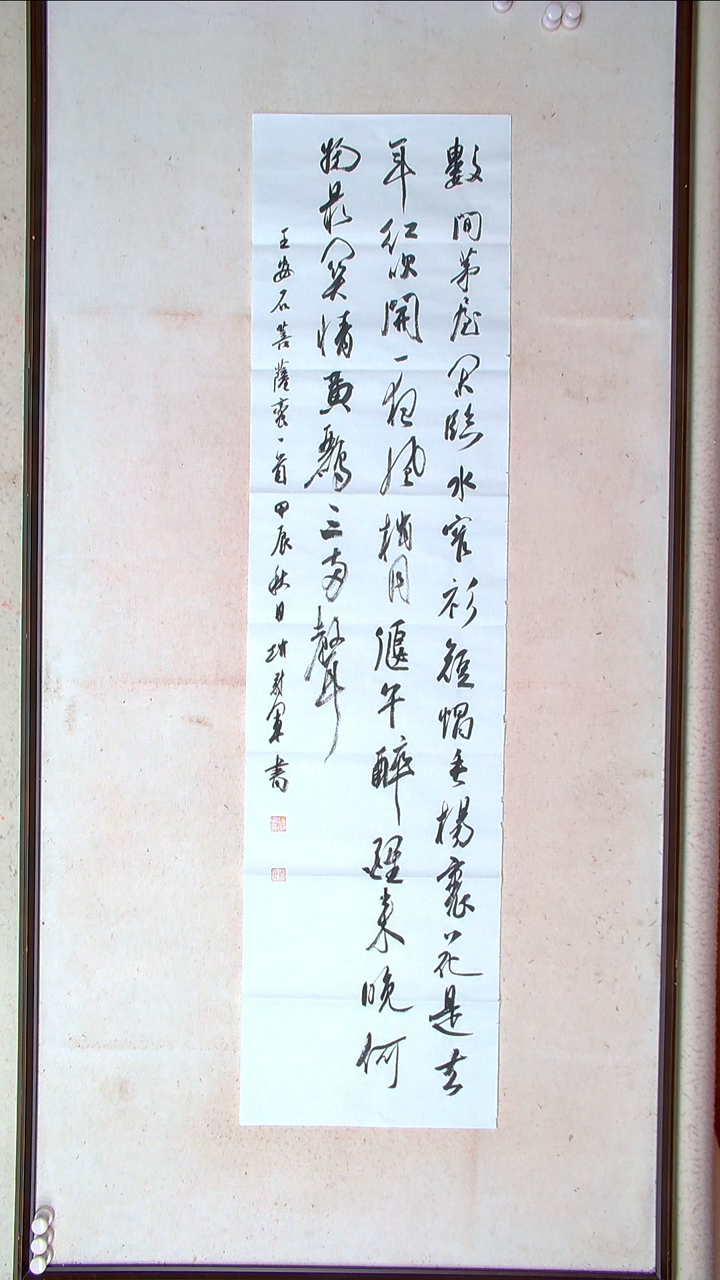 數間茅屋閑臨水窄衫短帽垂楊裏花是去
年紅吹開一夜風梢月偃午醉醒来晚何
物最關情黄鸝三兩聲
王安石菩薩蠻一首甲辰秋日軍書